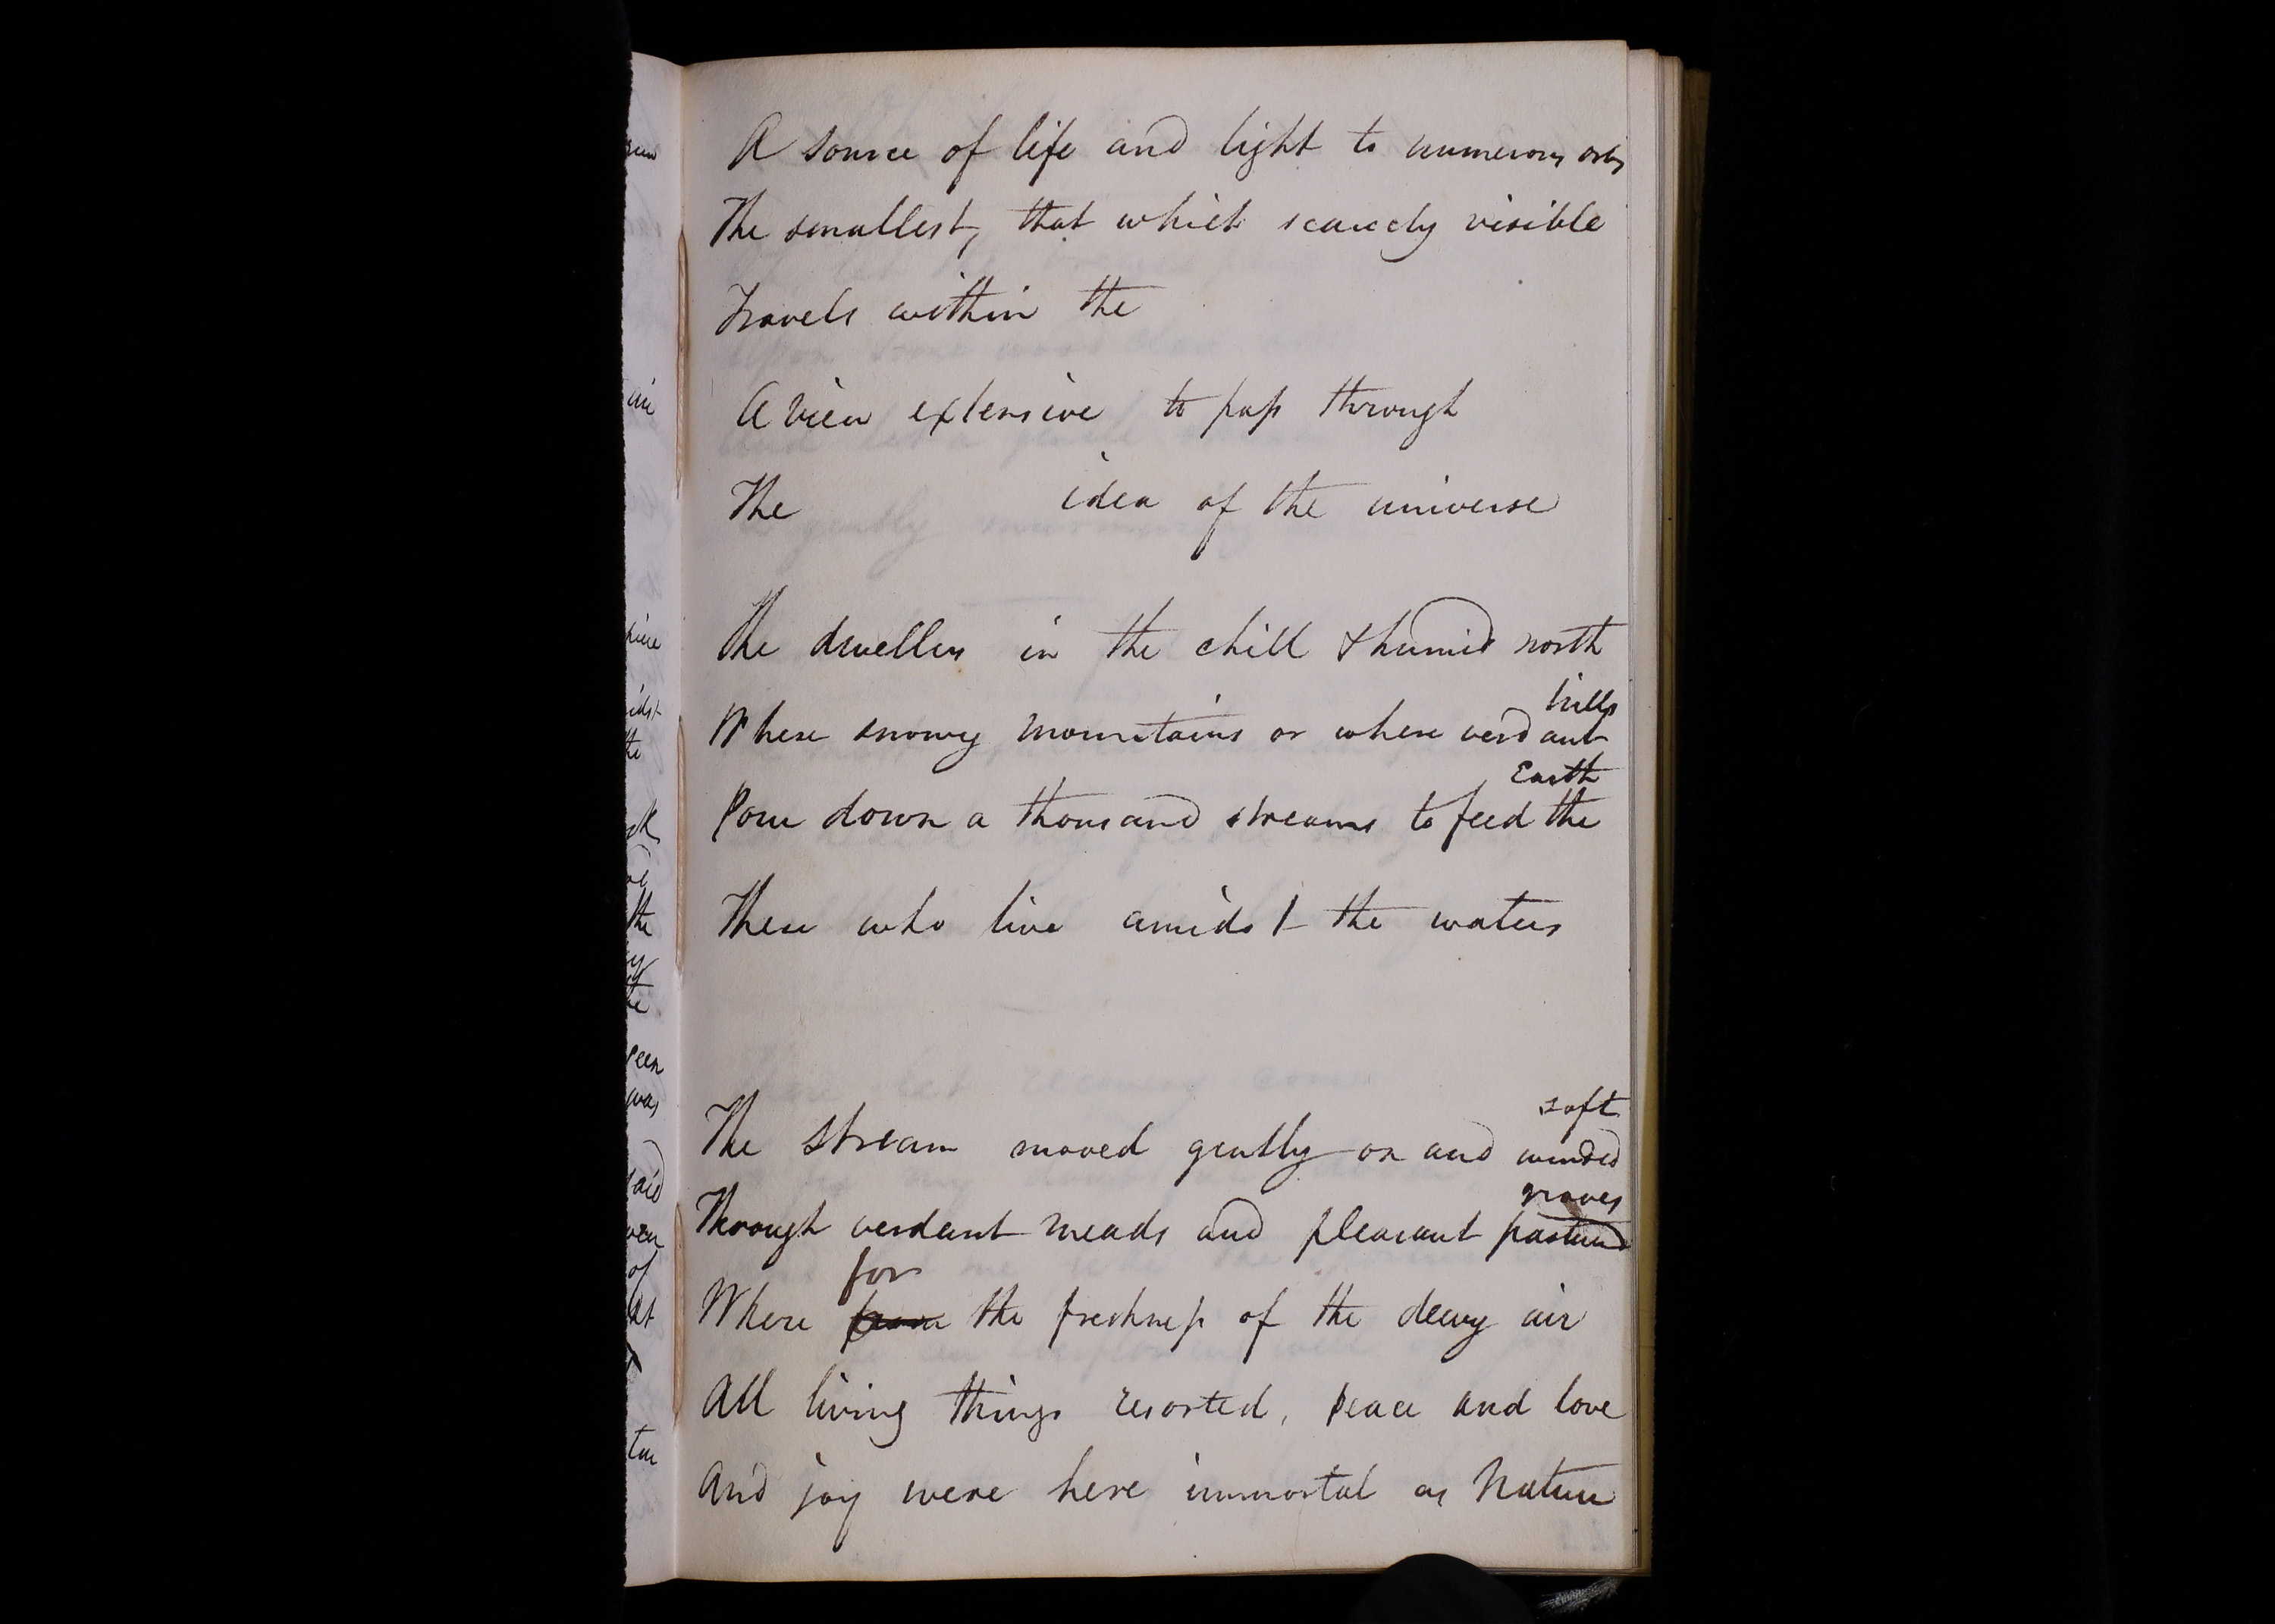 A source of life and light to numerous orbs
The smallest, that which scarcely visible
Travels within the
A view extensive to pass through
The idea of the universe
The dwellers in the chill & humid north
hills
Where snowy mountains or where verdant
Earth
Pour down a thousand streams to feed the
These who live amidst the waters
soft
The stream moved gently on and winded
groves
Through verdant meads and pleasant pastured
for
Where the freshness of the dewy air
All living things resorted, peace and love
And joy were here immortal as Nature